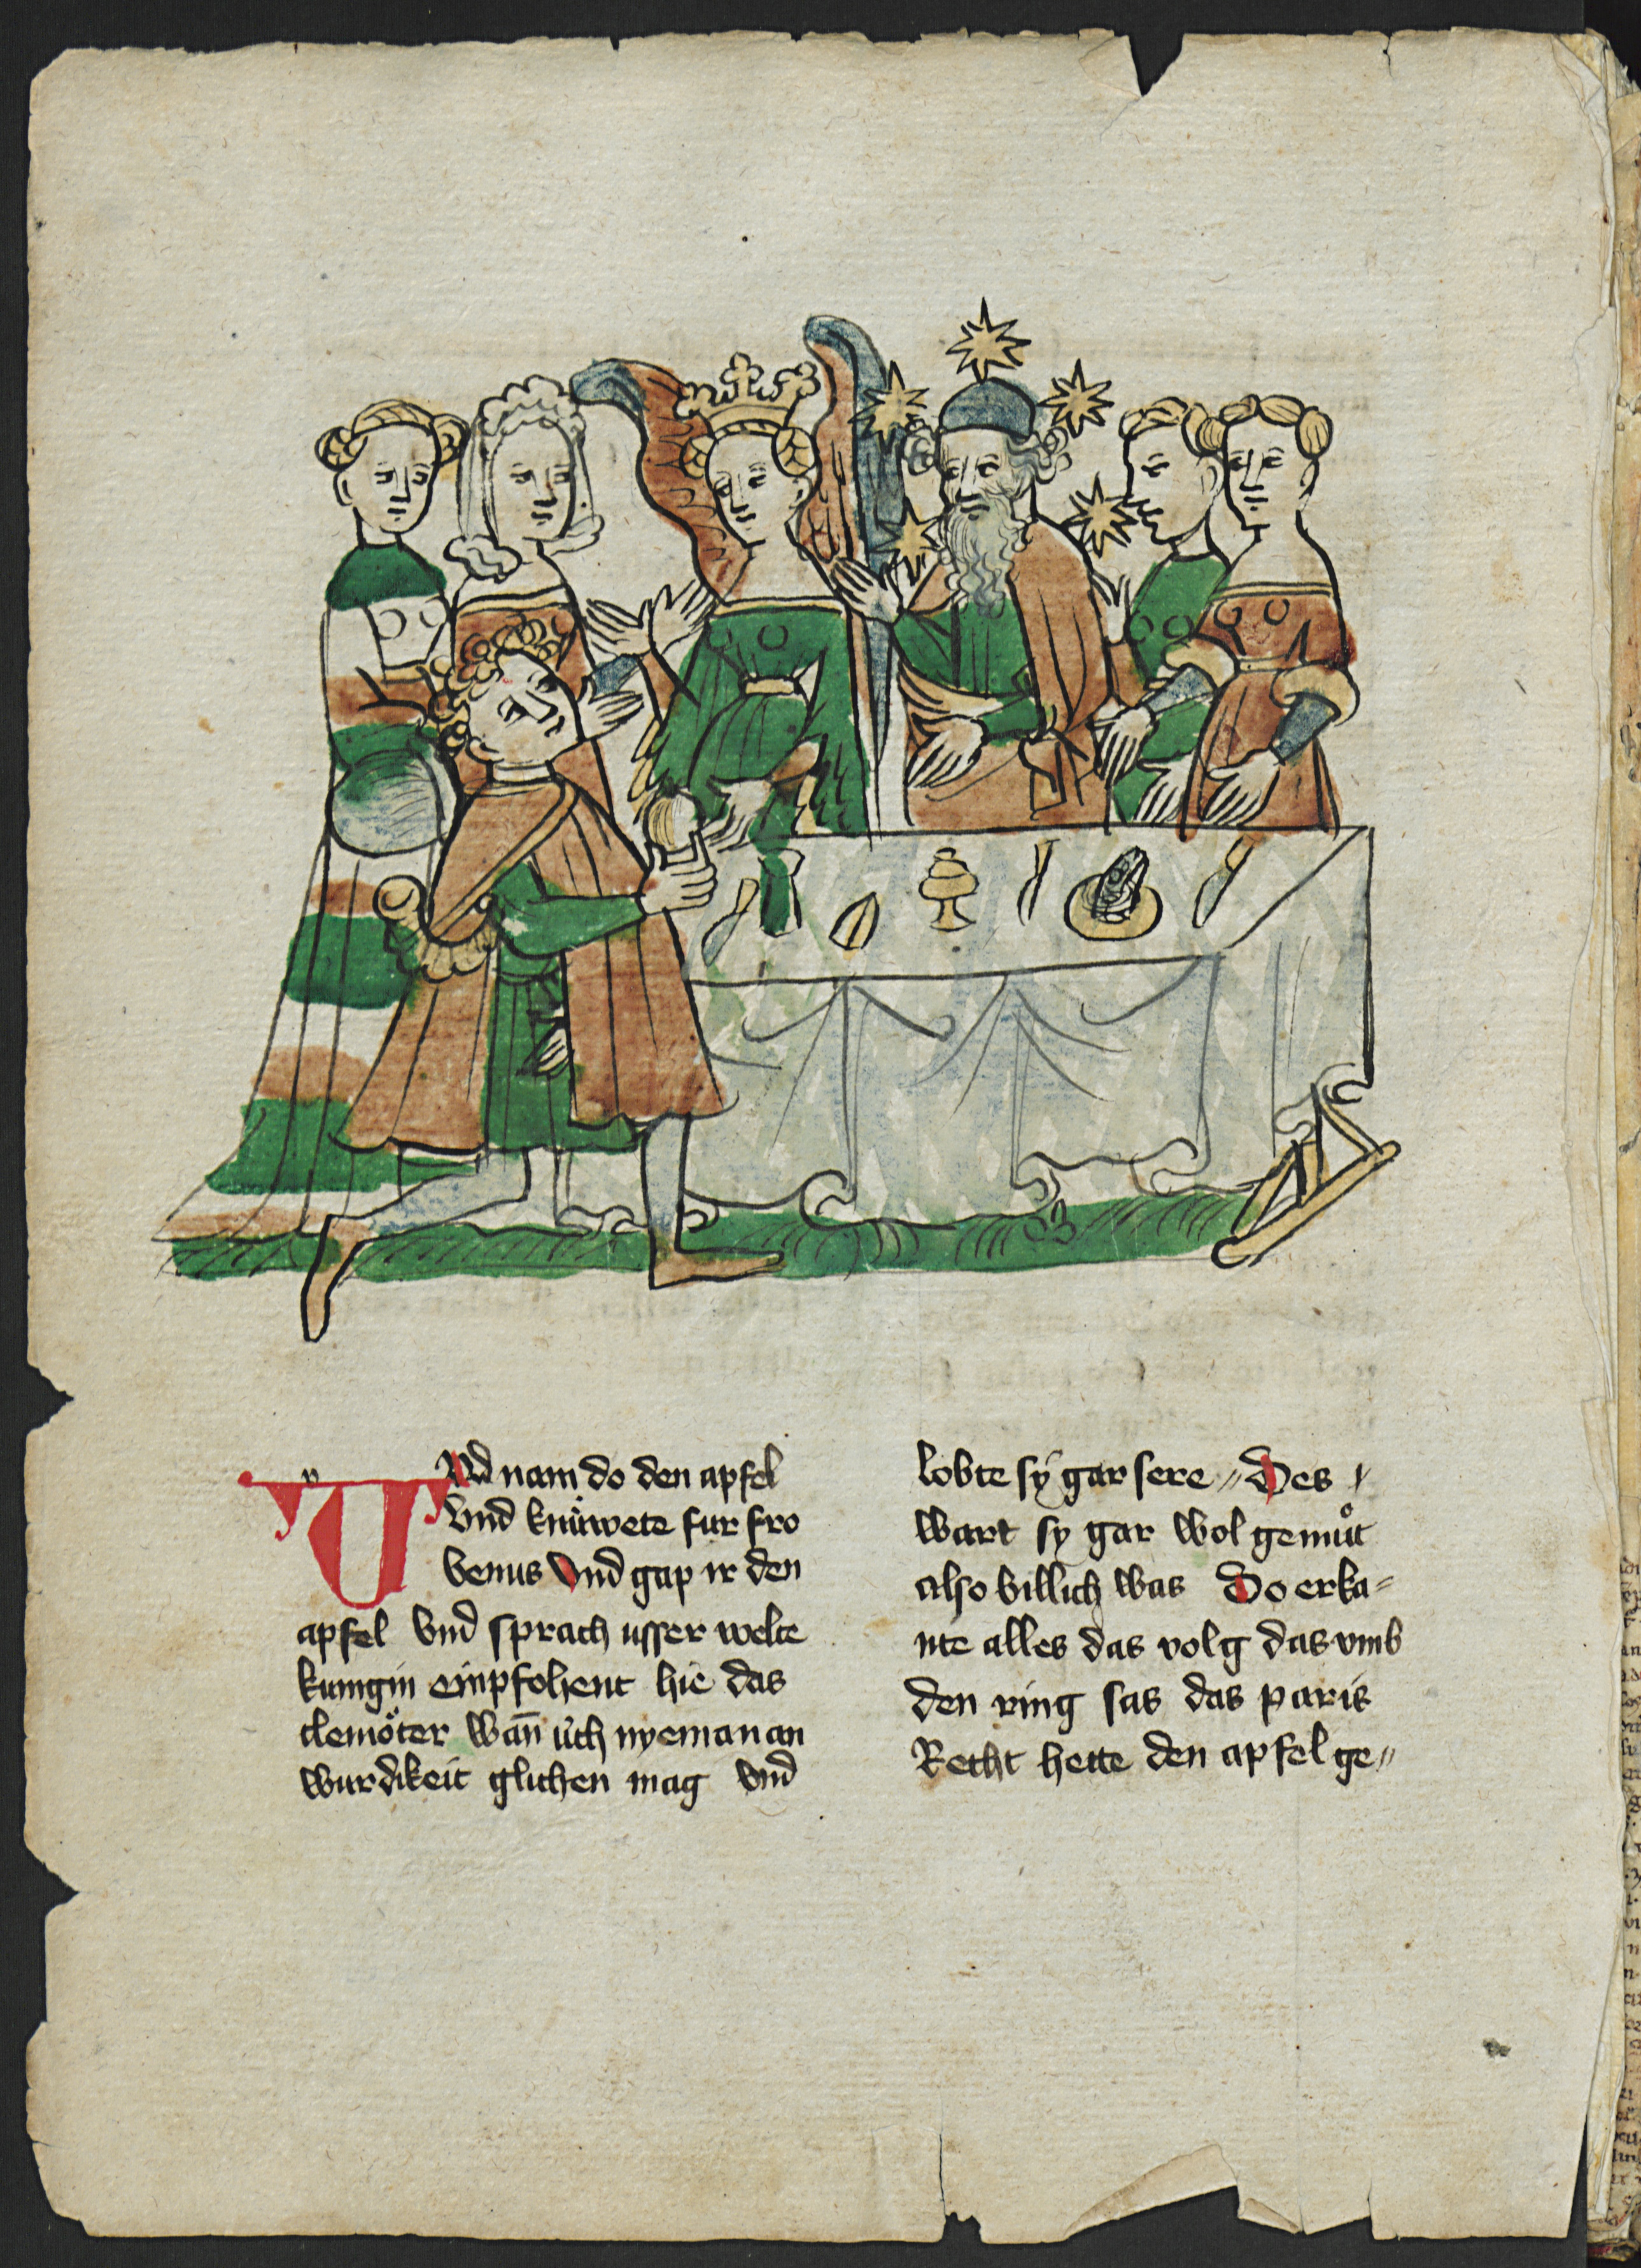 Vnd nam do den apfel
Vnd knuͤwete fur fro
venus Vnd gap ir den
apfel Vnd sprach usser welte
kungin einpfohent hie das
clemoͤter wañ uͤch nyeman an
wurdikeit glichen mag Vnd
lobte sy gar sere〃 Des
wart sy gar wol gemuͦt
also billich was Do erka=
nte alles das volg das vmb
den ring sas das paris
Recht hette den apfel ge〃